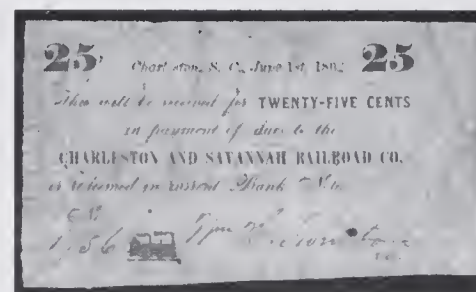 25 25
Charleston, S. C., June 1st, 186
This will be received for TWENTY-FIVE CENTS
in payment of dues to the
CHARLESTON AND SAVANNAH RAILROAD CO.
or redeemed in current Bank